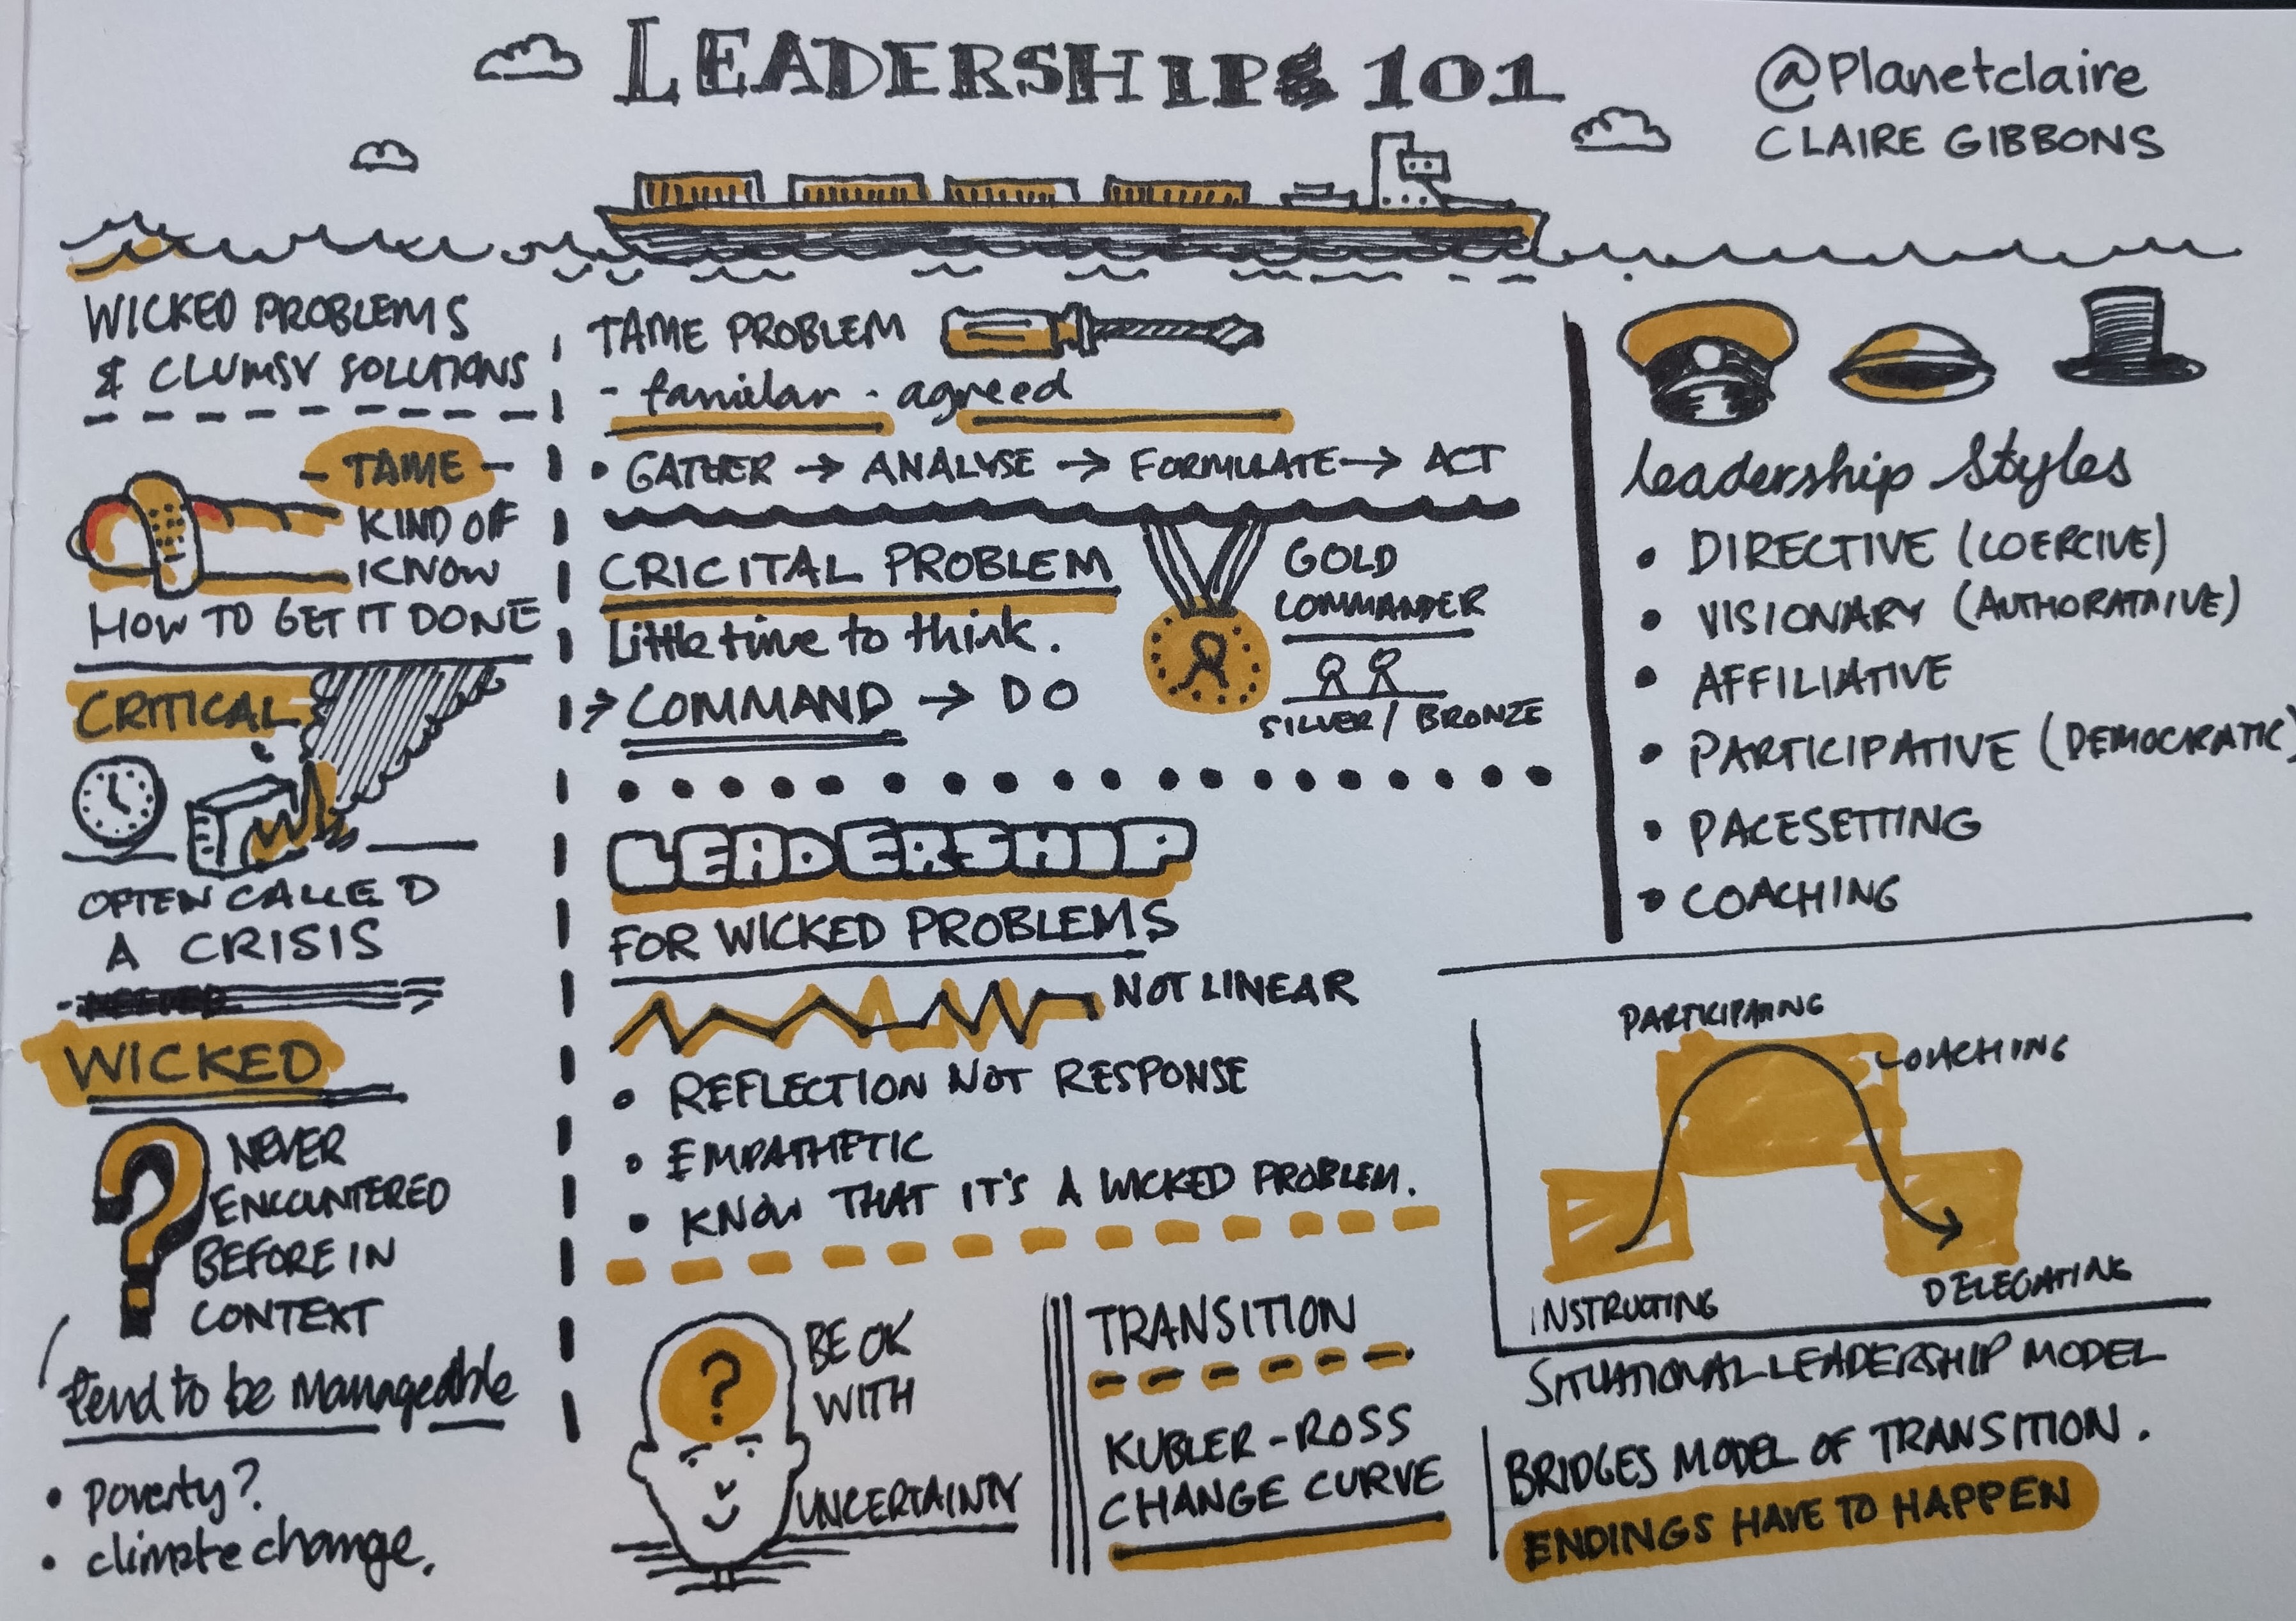 LEADERSHIP 101
@Planetclaire
CLAIRE GIBBONS
WICKED PROBLEMS
& CLUMSY SOLUTIONS
- TAME -
KIND OF
KNOW
HOW TO GET IT DONE
CRITICAL
OFTEN CALLED
A CRISIS
- NEEDED
WICKED
?
NEVER
ENCOUNTERED
BEFORE IN
CONTEXT
tend to be manageable
• poverty?
• climate change.
TAME PROBLEM
- familar - agreed
• GATHER → ANALYSE → FORMULATE → ACT
CRICITAL PROBLEM
Little time to think.
→ COMMAND → DO
GOLD
COMMANDER
SILVER / BRONZE
LEADERSHIP
FOR WICKED PROBLEMS
NOT LINEAR
• REFLECTION NOT RESPONSE
• EMPATHETIC
• KNOW THAT IT'S A WICKED PROBLEM.
?
BE OK
WITH
UNCERTAINTY
TRANSITION
KUBLER-ROSS
CHANGE CURVE
Leadership Styles
• DIRECTIVE (COERCIVE)
• VISIONARY (AUTHORATAIVE)
• AFFILIATIVE
• PARTICIPATIVE (DEMOCRATIC)
• PACESETTING
• COACHING
PARTICIPATING
COACHING
INSTRUCTING
DELEGATING
SITUATIONAL LEADERSHIP MODEL
BRIDGES MODEL OF TRANSITION.
ENDINGS HAVE TO HAPPEN